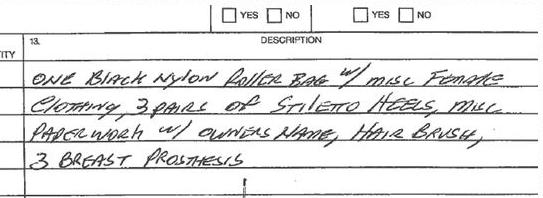 YES NO YES NO
ITY 13. DESCRIPTION
ONE BLACK NYLON ROLLER BAG W/ MISC FEMALE
CLOTHING, 3 PAIRS OF STILETTO HEELS, MISC
PAPERWORK W/ OWNERS NAME, HAIR BRUSH,
3 BREAST PROSTHESIS